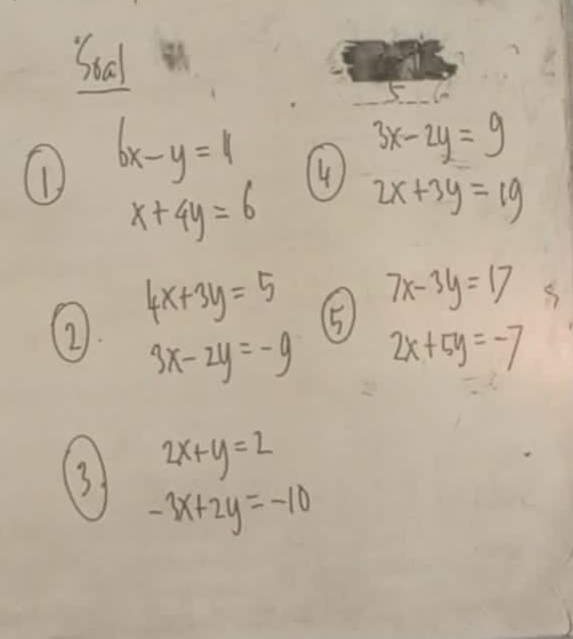 Soal
① 6x-y=11
x+4y=6
②. 4x+3y=5
3x-2y=-9
③ 2x+y=2
-3x+2y=-10
④ 3x-2y=9
2x+3y=19
⑤ 7x-3y=17
2x+5y=-7